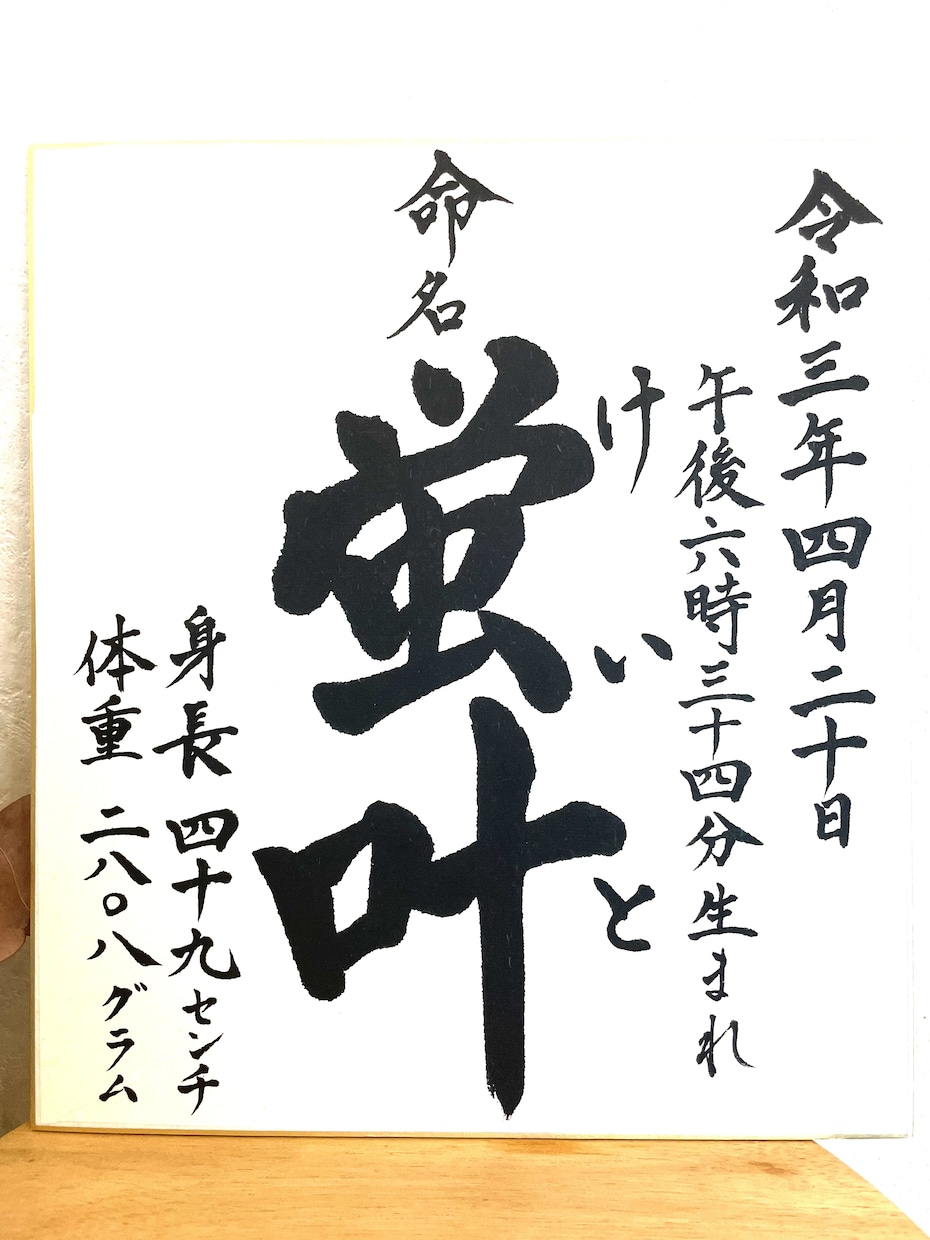 令和三年四月二十日
午後六時三十四分生まれ
けいと
命名
蛍叶
身長 四十九センチ
体重 二八〇八グラム